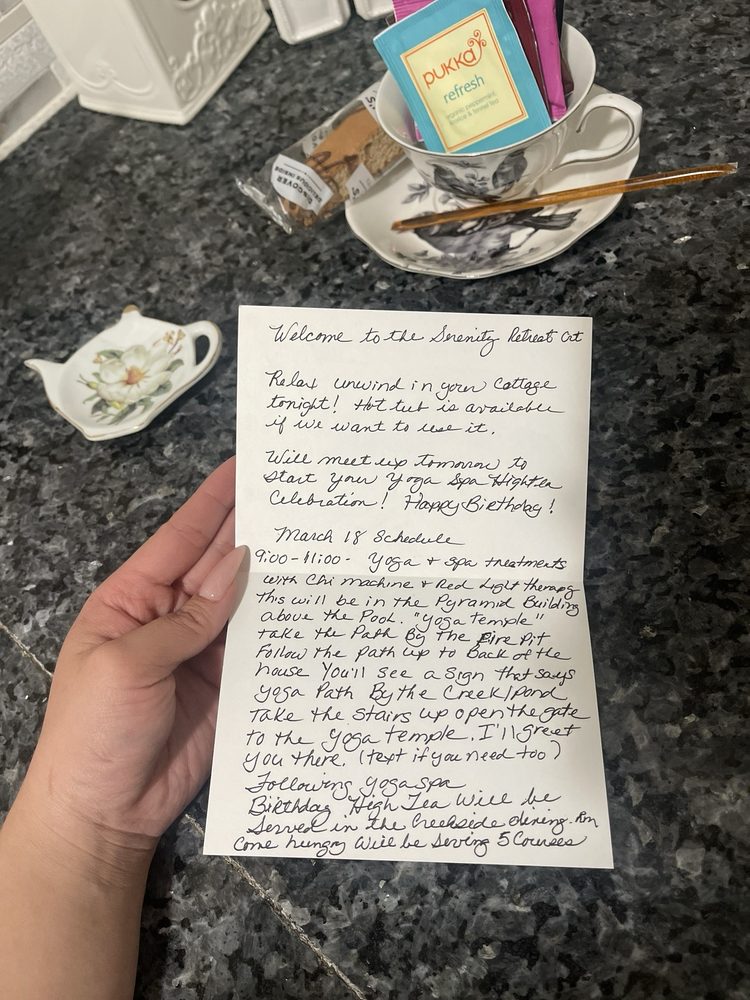 pukka
refresh
organic peppermint,
licorice & fennel tea
DISCOVER
DELICIOUS INSIDE
Welcome to the Serenity Retreat Ort
Relax unwind in your Cottage
tonight! Hot tub is available
if we want to use it.
Will meet up tomorrow to
Start your Yoga Spa Hightea
Celebration! Happy Birthday!
March 18 Schedule
9:00-11:00- Yoga + Spa treatments
with Chi machine + Red Light therapy
this will be in the Pyramid Building
above the Pool. "Yoga Temple"
take the Path By The Fire Pit
Follow the path up to Back of the
house You'll see a Sign that says
Yoga Path By the Creek/pond
Take the Stairs up open the gate
to the Yoga Temple. I'll greet
you there. (text if you need too)
Following Yoga Spa
Birthday High Tea Will be
Served in the Creekside dining. Rm
Come hungry Will be Serving 5 Courses